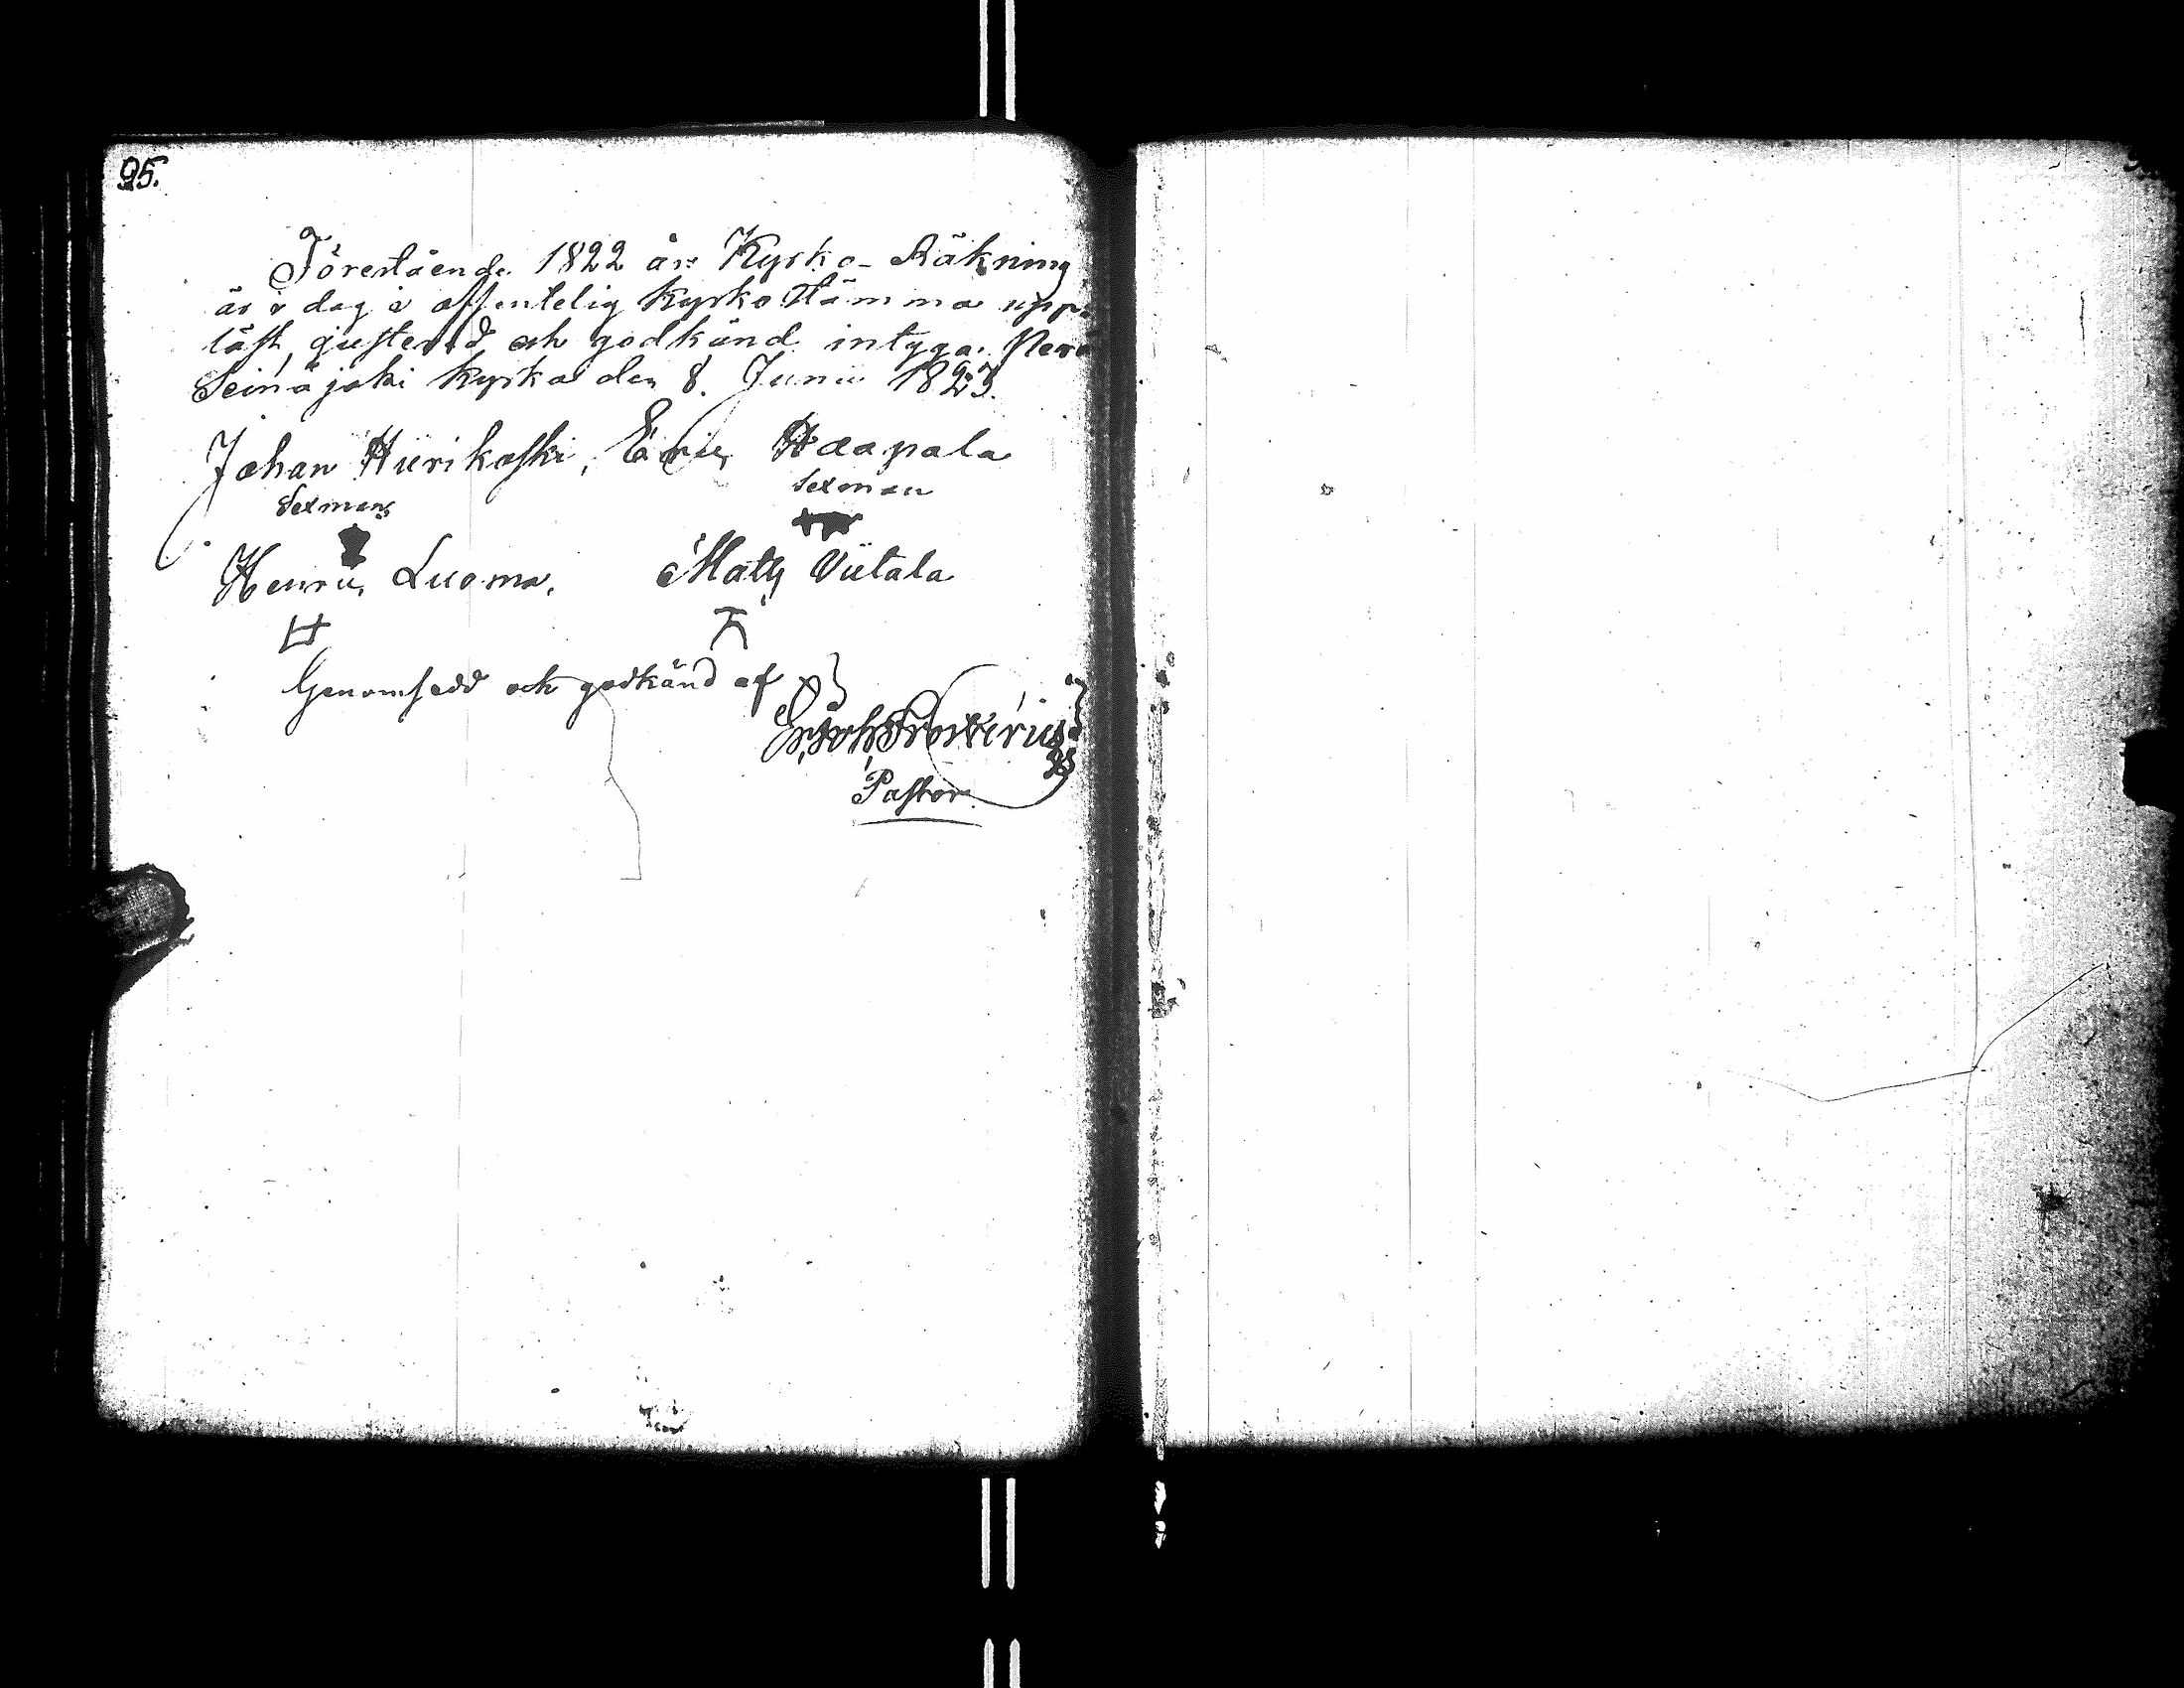 95.
Förestående 1822 års Kyrko-Räkning
är i dag i offentelig Kyrko Stämma upp-
läst, justerad och godkänd intyga. Perä
Seinäjoki kyrka den 8. Junii 1823.
Johan Hiirikoski, Eric Haapala
Sexman Sexman
Henric Luoma. Matts Viitala
Genomsedd och godkänd af
Pastor.